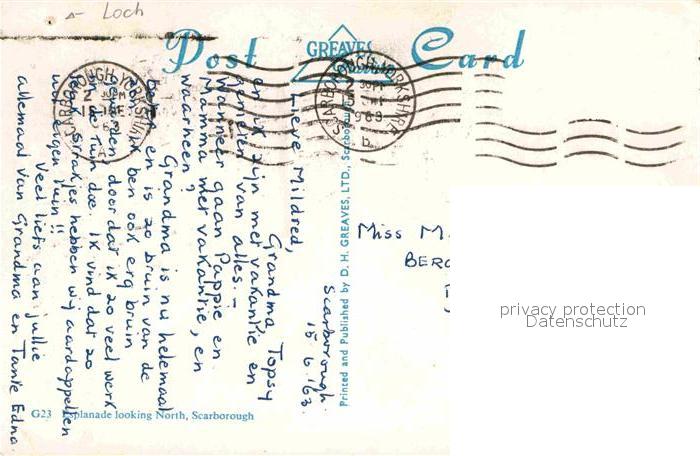 Loch
Post Card
GREAVES
SCARBOROUGH YORKSHIRE
SCARBOROUGH YORKSHIRE
Scarborough
15.6.'63.
Lieve Mildred,
Grandma, Topsy
en ik zijn met vakantie en
genieten van alles. –
Wanneer gaan Pappie en
Mamma met vakantie, en
waarheen?
Grandma is nu helemaal
en is zo bruin van de
ben ook erg bruin
door dat ik zo veel werk
in de tuin doe. Ik vind dat zo
hebben wij aardappelen
eigen tuin!!
Veel liefs aan jullie
allemaal van Grandma en Tante Edna.
Printed and Published by D. H. GREAVES, LTD., Scarborough
Miss M.
BERG
privacy protection
Datenschutz
G23 Esplanade looking North, Scarborough